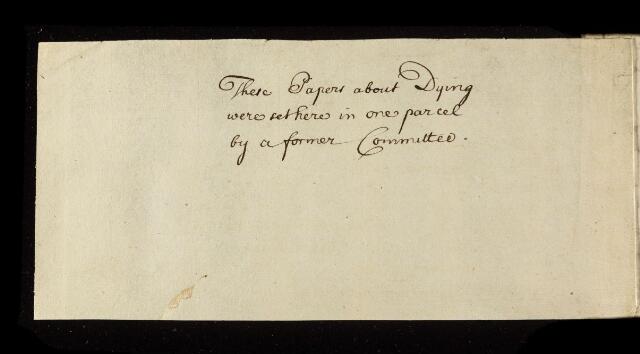 These Papers about Dying
were set here in one parcel
by a former Committee.